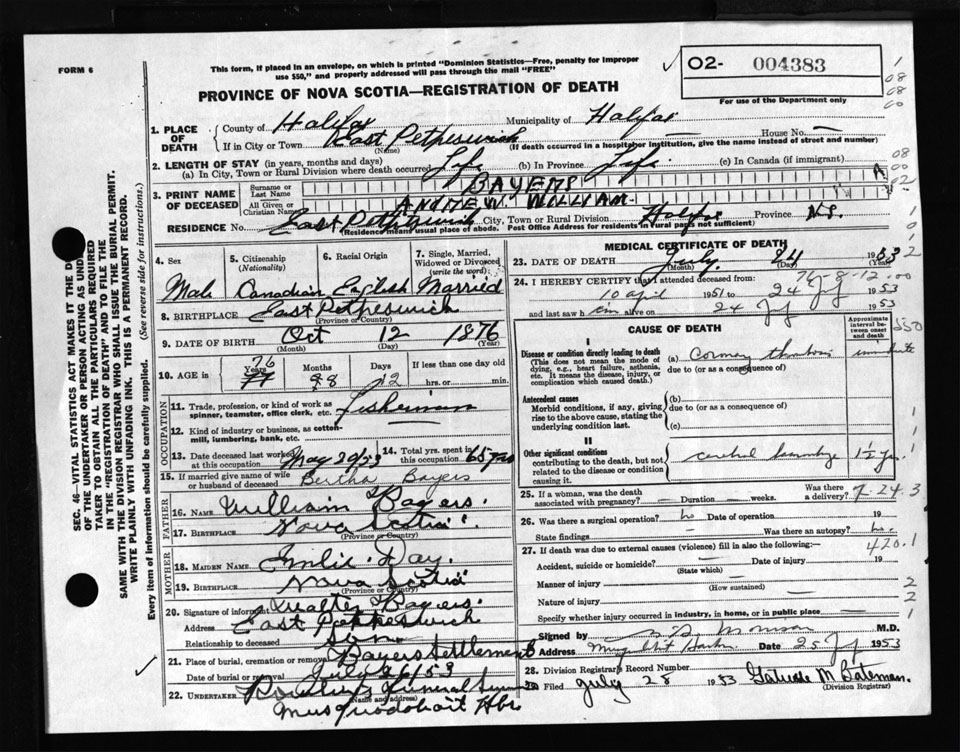 FORM 6
This form, if placed in an envelope, on which is printed "Dominion Statistics—Free, penalty for improper
use $50," and properly addressed will pass through the mail "FREE"
02- 004383
For use of the Department only
PROVINCE OF NOVA SCOTIA—REGISTRATION OF DEATH
1. PLACE OF DEATH
County of Halifax Municipality of Halifax
If in City or Town East Petpeswick House No. —
(Name) (If death occurred in a hospital or institution, give the name instead of street and number)
2. LENGTH OF STAY (in years, months and days)
(a) In City, Town or Rural Division where death occurred Life (b) In Province Life (c) In Canada (if immigrant)
3. PRINT NAME OF DECEASED
Surname or Last Name BAYERS
All Given or Christian Names ANDREW WILLIAM
RESIDENCE No. East Petpeswick City, Town or Rural Division Halifax Province N.S.
(Residence means usual place of abode. Post Office Address for residents in rural parts not sufficient)
4. Sex Male
5. Citizenship (Nationality) Canadian
6. Racial Origin English
7. Single, Married, Widowed or Divorced (write the word) Married
8. BIRTHPLACE East Petpeswick
(Province or Country)
9. DATE OF BIRTH Oct 12 1876
(Month) (Day) (Year)
10. AGE in Years 76 77 Months 8 Days 12 If less than one day old
hrs. or min.
OCCUPATION
11. Trade, profession, or kind of work as spinner, teamster, office clerk, etc. Fisherman
12. Kind of industry or business, as cotton-mill, lumbering, bank, etc.
13. Date deceased last worked at this occupation May 20/53
14. Total yrs. spent in this occupation 65 yrs
15. If married give name of wife or husband of deceased Bertha Bayers
FATHER
16. NAME William Bayers.
17. BIRTHPLACE Nova Scotia
(Province or Country)
MOTHER
18. MAIDEN NAME Emlie Day.
19. BIRTHPLACE Nova Scotia
(Province or Country)
20. Signature of informant Walter Bayers.
Address East Petpeswick
Relationship to deceased Son
21. Place of burial, cremation or removal Bayers Settlement
Date of burial or removal July 26/53
22. UNDERTAKER Funeral
(Name and address)
Musquodoboit Hbr
MEDICAL CERTIFICATE OF DEATH
23. DATE OF DEATH July 24 1953
(Month) (Day) (Year)
76-8-12
24. I HEREBY CERTIFY that I attended deceased from:
10 April 1951 to 24 July 1953
and last saw him alive on 24 July 1953
CAUSE OF DEATH
Approximate interval between onset and death
I
Disease or condition directly leading to death (a) Coronary thrombosis immediate
(This does not mean the mode of dying, e.g., heart failure, asthenia, etc. It means the disease, injury, or complication which caused death.)
due to (or as a consequence of)
Antecedent causes
Morbid conditions, if any, giving rise to the above cause, stating the underlying condition last.
(b)
due to (or as a consequence of)
(c)
II
Other significant conditions
contributing to the death, but not related to the disease or condition causing it.
cerebral hemorrhage 1½ yrs.
25. If a woman, was the death associated with pregnancy? — Duration — weeks. Was there a delivery?
7-24.3
26. Was there a surgical operation? no Date of operation 19
State findings — Was there an autopsy? no.
420.1
27. If death was due to external causes (violence) fill in also the following:—
Accident, suicide or homicide? Date of injury 19
(State which)
Manner of injury
(How sustained)
Nature of injury
Specify whether injury occurred in industry, in home, or in public place
Signed by M.D.
Address Musquodoboit Harbour Date 25 July 1953
28. Division Registrar's Record Number
29. Filed July 28 1953 Gertrude M Bateman.
(Division Registrar)
SEC. 46—VITAL STATISTICS ACT MAKES IT THE D
OF THE UNDERTAKER OR PERSON ACTING AS UND
TAKER TO OBTAIN ALL THE PARTICULARS REQUIRED
IN THE "REGISTRATION OF DEATH" AND TO FILE THE
SAME WITH THE DIVISION REGISTRAR WHO SHALL ISSUE THE BURIAL PERMIT.
WRITE PLAINLY WITH UNFADING INK. THIS IS A PERMANENT RECORD.
Every item of information should be carefully supplied. (See reverse side for instructions.)